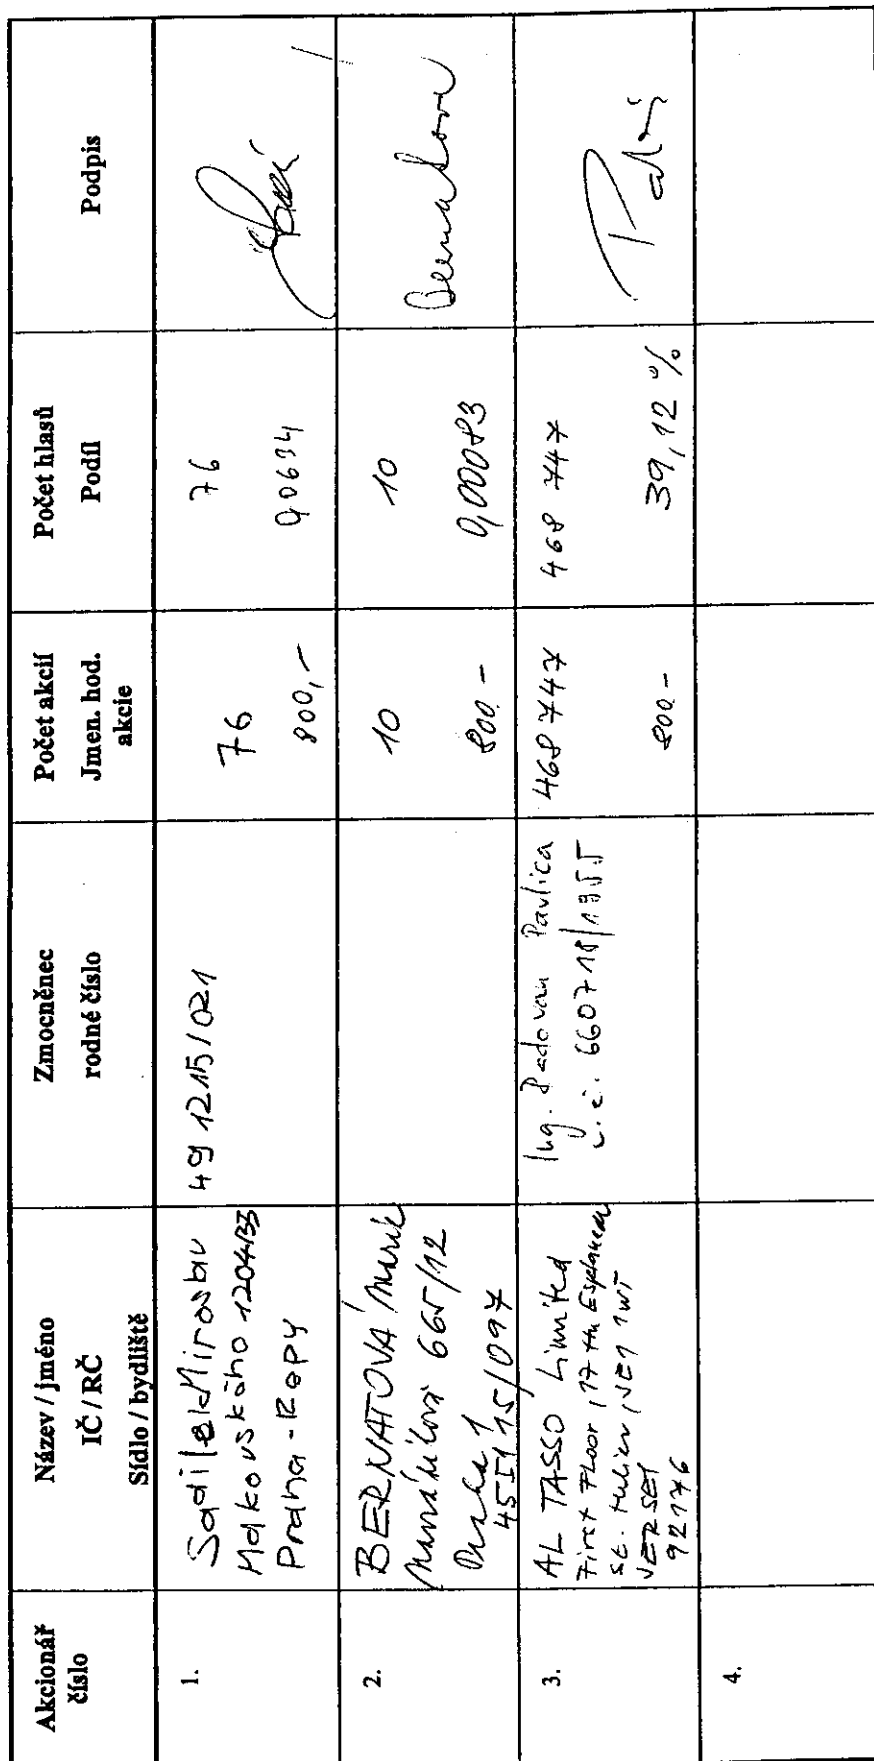 Akcionář
číslo
Název / jméno
IČ / RČ
Sídlo / bydliště
Zmocněnec
rodné číslo
Počet akcií
Jmen. hod.
akcie
Počet hlasů
Podíl
Podpis
1.
Sadílek Miroslav
Makovského 1204/33
Praha - Řepy
49 12 15/021
76
800,-
76
0,00634
2.
BERNATOVÁ
665/12
Praha 1
455115/097
10
800 -
10
0,00083
Bernatová
3.
AL TASSO Limited
First Floor, 17 the Esplanade
St. Helier, JE1 1WT
JERSEY
92176
Ing. Radovan Pavlica
r.č. 660718/1955
468 747
800 -
468 747
39,12 %
4.